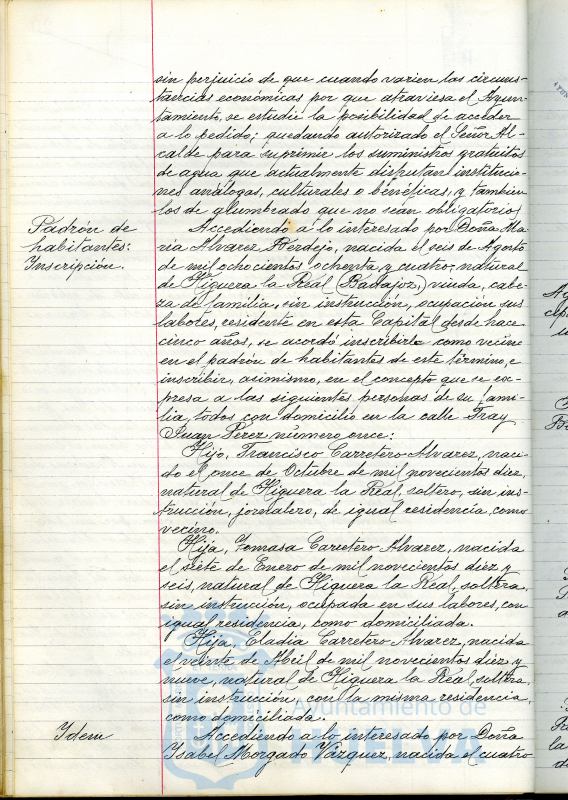 sin perjuicio de que cuando varien las circuns-
tancias económicas por que atraviesa el Ayun-
tamiento, se estudie la posibilidad de acceder
a lo pedido; quedando autorizado el Señor Al-
calde para suprimir los suministros gratuitos
de agua que actualmente disfrutan institucio-
nes análogas, culturales o benéficas, y tambien
los de alumbrado que no sean obligatorios.
Padrón de
habitantes:
Inscripción.
Accediendo a lo interesado por Doña Ma-
ria Alvarez Berdejo, nacida el seis de Agosto
de mil ochocientos ochenta y cuatro, natural
de Higuera la Real (Badajoz), viuda, cabe-
za de familia, sin instrucción, ocupación sus
labores, residente en esta Capital desde hace
cinco años, se acordó inscribirla como vecino
en el padrón de habitantes de este término, e
inscribir, asimismo, en el concepto que se ex-
presa a las siguientes personas de su fami-
lia, todos con domicilio en la calle Fray
Juan Perez, número once:
Hijo, Francisco Carretero Alvarez, naci-
do el once de Octubre de mil novecientos diez,
natural de Higuera la Real, soltero, sin ins-
trucción, jornalero, de igual residencia, como
vecino.
Hija, Tomasa Carretero Alvarez, nacida
el siete de Enero de mil novecientos diez y
seis, natural de Higuera la Real, soltera,
sin instrucción, ocupada en sus labores, con
igual residencia, como domiciliada.
Hija, Eladia Carretero Alvarez, nacida
el veinte de Abril de mil novecientos diez y
nueve, natural de Higuera la Real, soltera,
sin instrucción, con la misma residencia,
como domiciliada.
Idem
Accediendo a lo interesado por Doña
Isabel Morgado Vázquez, nacida el cuatro
Ayuntamiento de
HUELVA